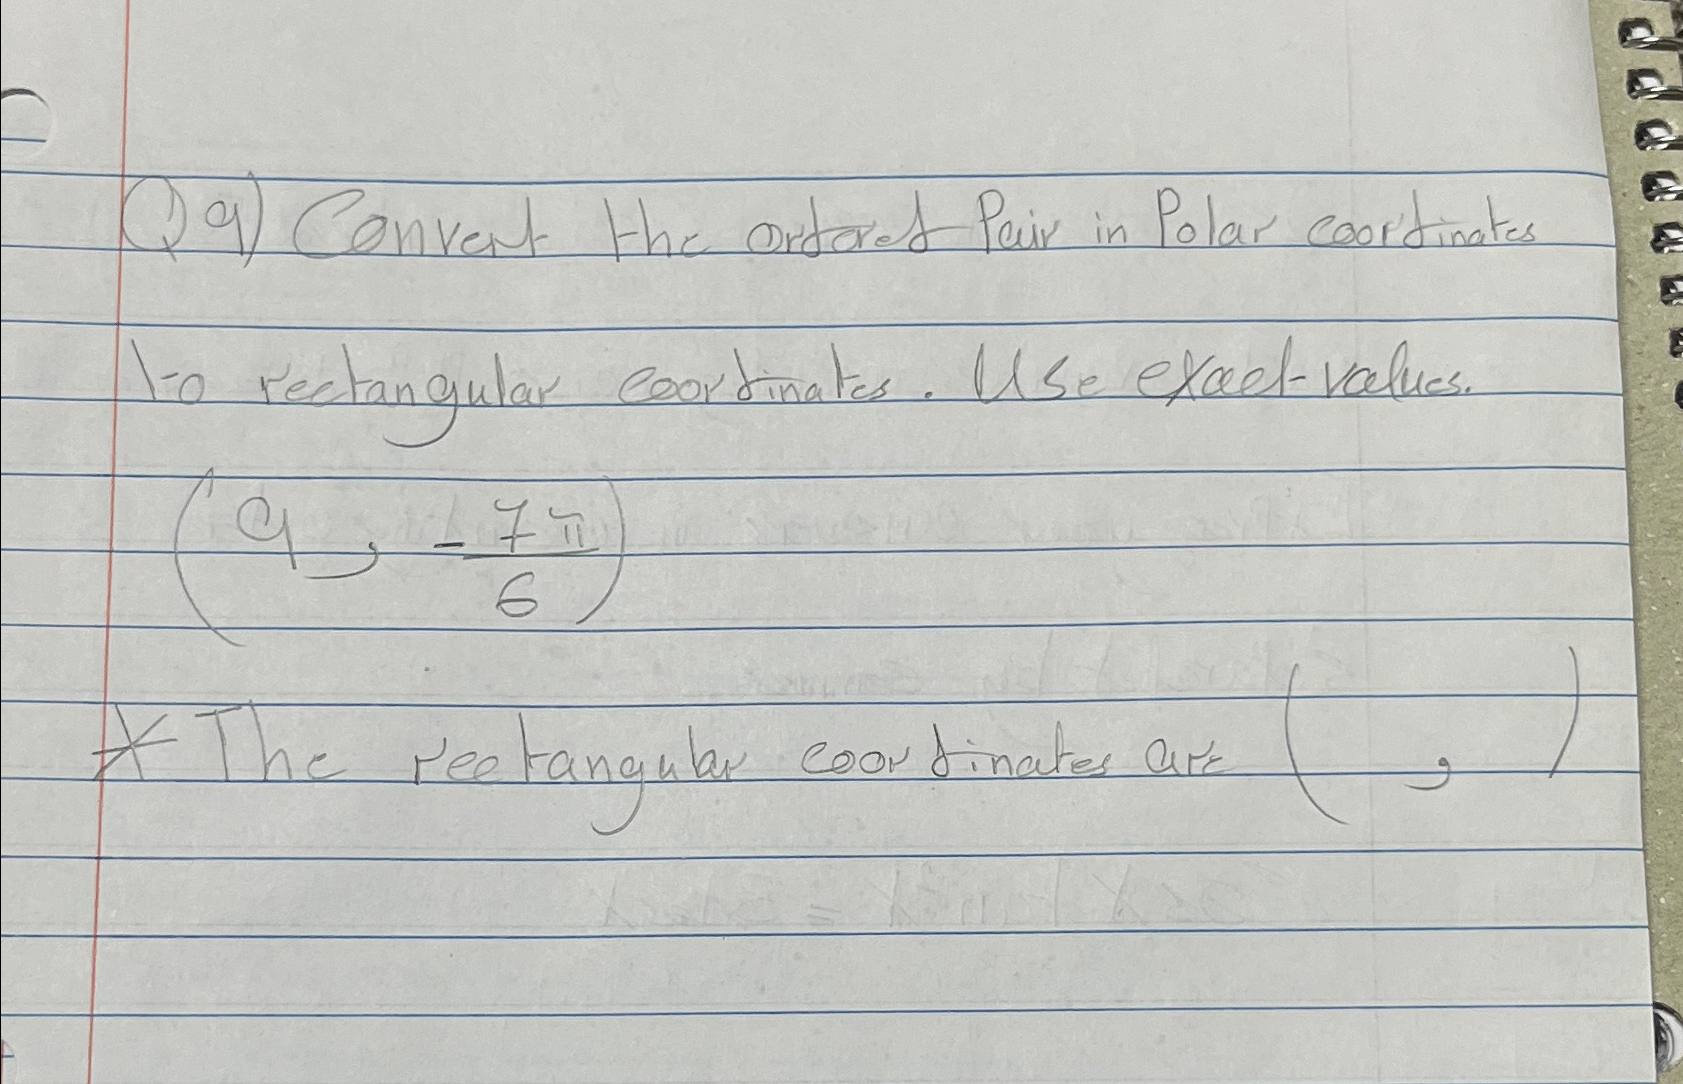 Q9) Convert the ordered Pair in Polar coordinates
to rectangular coordinates. Use exact values.
(9, -7π/6)
* The rectangular coordinates are ( , )